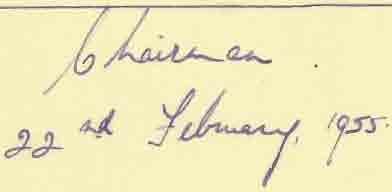 Chairman.
22nd February, 1955.